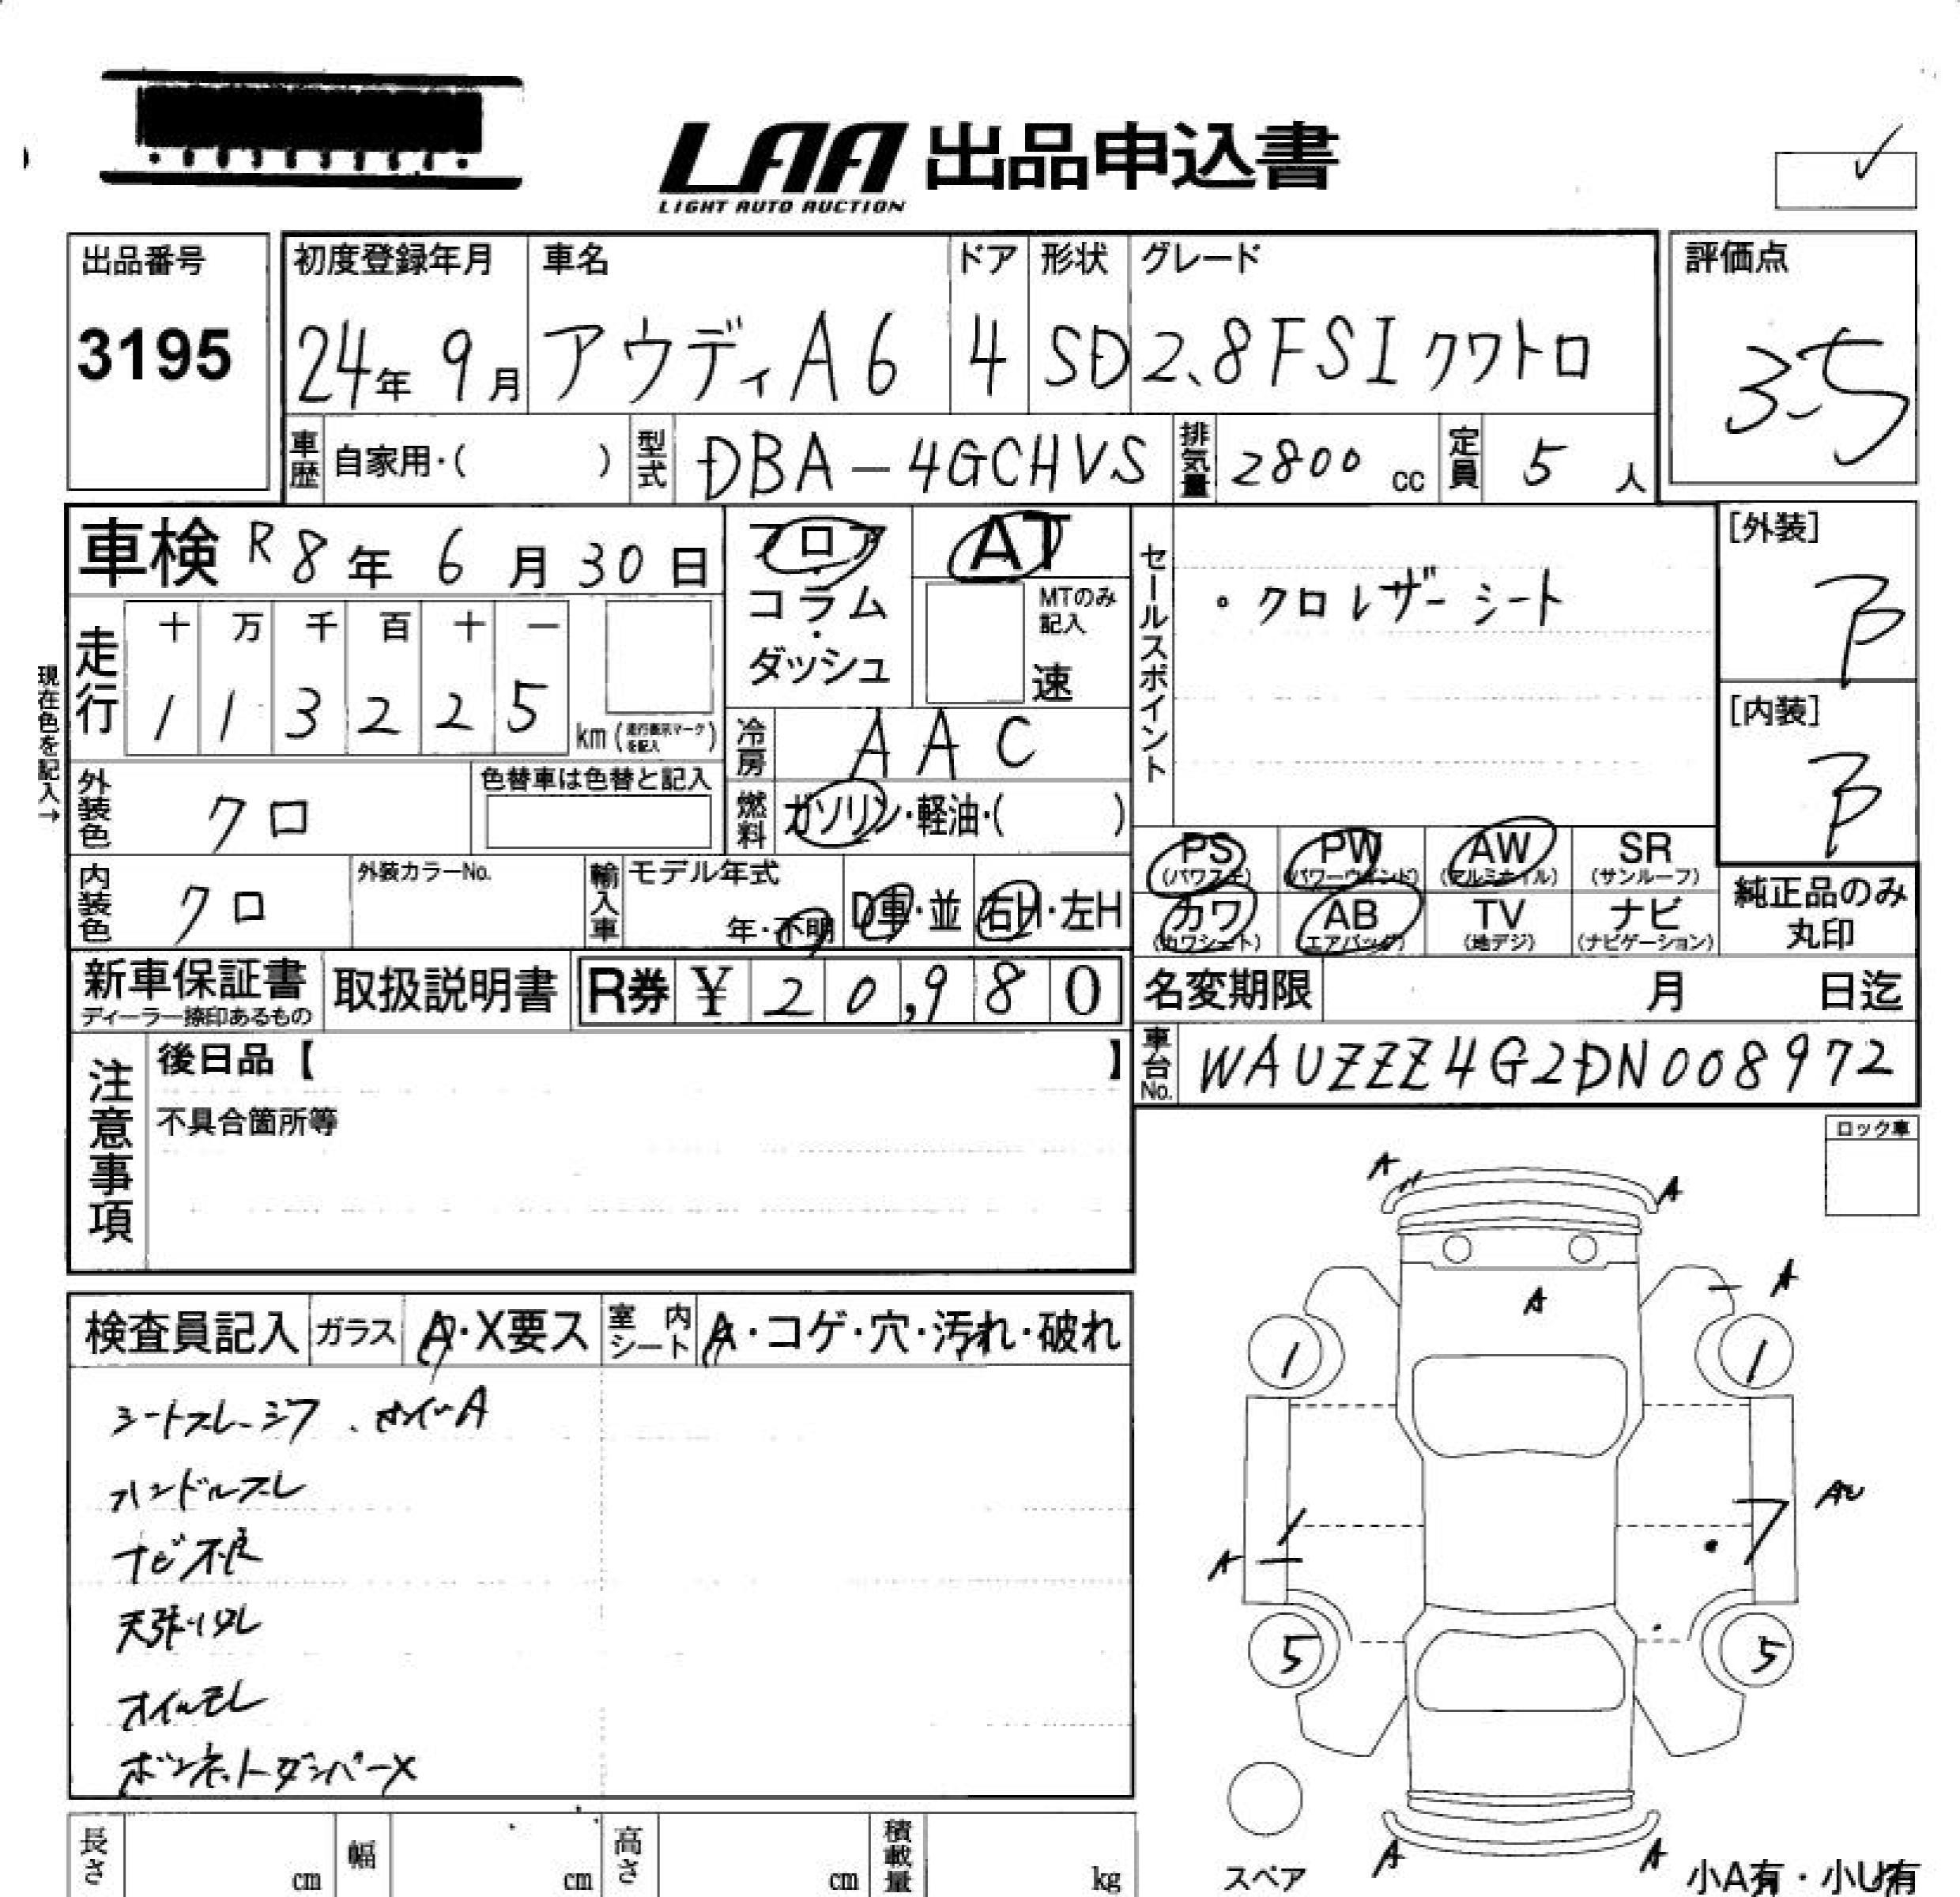 LAA 出品申込書
LIGHT AUTO AUCTION
出品番号 初度登録年月 車名 ドア 形状 グレード 評価点
3195 24年 9月 アウディ A6 4 SD 2.8FSIクワトロ 3.5
車歴 自家用・( ) 型式 DBA-4GCHVS 排気量 2800 cc 定員 5 人
車検 R8年 6月 30日 フロア・コラム・ダッシュ AT
MTのみ記入 速
セールスポイント ・クロレザーシート
[外装] B
[内装] B
現在色を記入→
走行 十 万 千 百 十 一
1 1 3 2 2 5 km (走行表示マークを記入)
冷房 AAC
外装色 クロ 色替車は色替と記入
燃料 ガソリン・軽油・( )
PS (パワステ) PW (パワーウィンド) AW (アルミホイル) SR (サンルーフ)
カワ (カワシート) AB (エアバッグ) TV (地デジ) ナビ (ナビゲーション)
純正品のみ丸印
内装色 クロ 外装カラーNo. 輸入車 モデル年式 年・不明 D車・並 右H・左H
新車保証書 ディーラー捺印あるもの 取扱説明書 R券 ¥ 20,980
名変期限 月 日迄
車台No. WAUZZZ4G2DN008972
注意事項 後日品【 】
不具合箇所等
ロック車
検査員記入 ガラス A・X要ス 室内シート A・コゲ・穴・汚れ・破れ
シートスレ・シワ
ハンドルスレ
ナビ不良
天張りタレ
オイルモレ
ボンネットダンパーX
A A
A A
1 1
AU
A
5 5
A A
スペア 小A有・小U有
長さ cm 幅 cm 高さ cm 積載量 kg